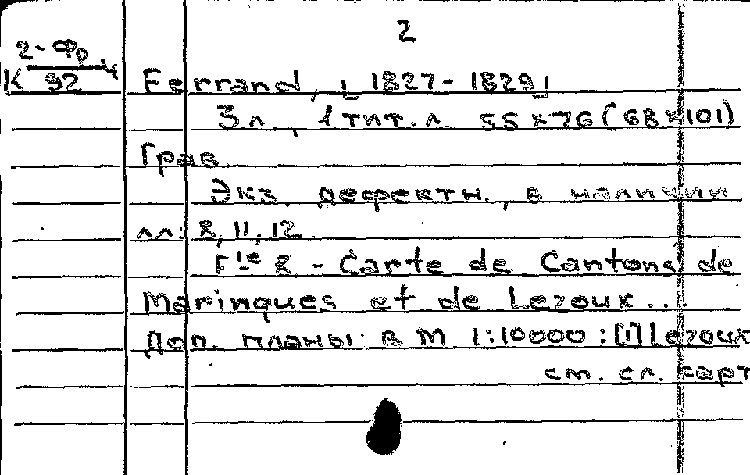 2
2-Фр
К 32-4
Ferrand, [1827-1829]
3 л., 1 тит. л. 55×76 (68×101)
Грав.
Экз. дефектн., в наличии
лл: 8, 11, 12.
Fle 8 - Carte de Cantons de
Maringues et de Lezoux...
Доп. планы: в М 1:10000: [1] Lezoux
см. сл. карт